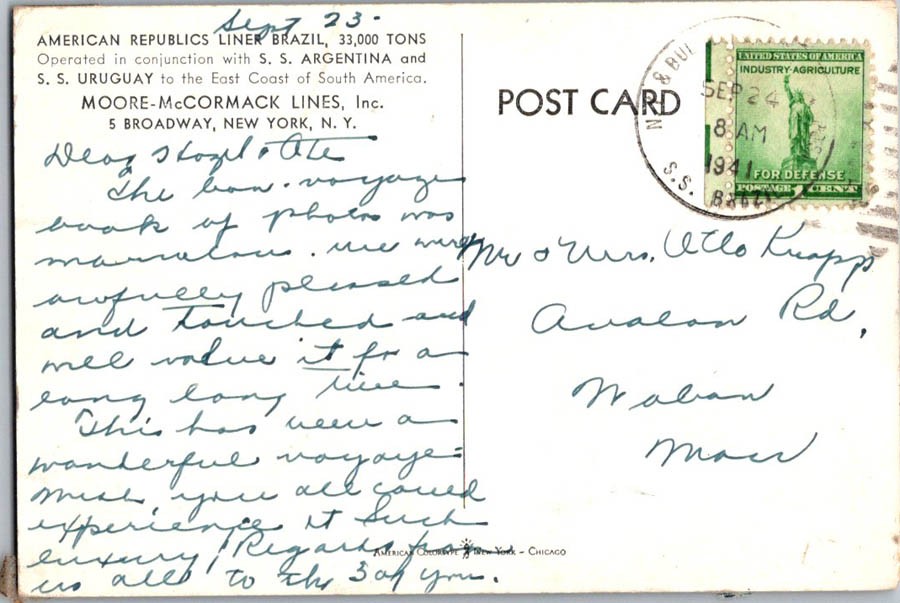 Sept 23-
AMERICAN REPUBLICS LINER BRAZIL, 33,000 TONS
Operated in conjunction with S. S. ARGENTINA and
S. S. URUGUAY to the East Coast of South America.
MOORE-McCORMACK LINES, Inc.
5 BROADWAY, NEW YORK, N. Y.
Dear Hazel & Otto
The bon-voyage
book of photos was
marvelous. We were
awfully pleased
and touched and
will value it for a
long long time.
This has been a
wonderful voyage-
Wish you all could
experience it Such
luxury! Regards from
us all to the 3 of you.
POST CARD
N.Y. & BUE
SEP 24
8 AM
1941
S.S. BRAZIL
UNITED STATES OF AMERICA
INDUSTRY-AGRICULTURE
FOR DEFENSE
POSTAGE 1 CENT
Mr & Mrs. Otto Knapp
Avalon Rd,
Waban
Mass
AMERICAN COLORTYPE NEW YORK - CHICAGO